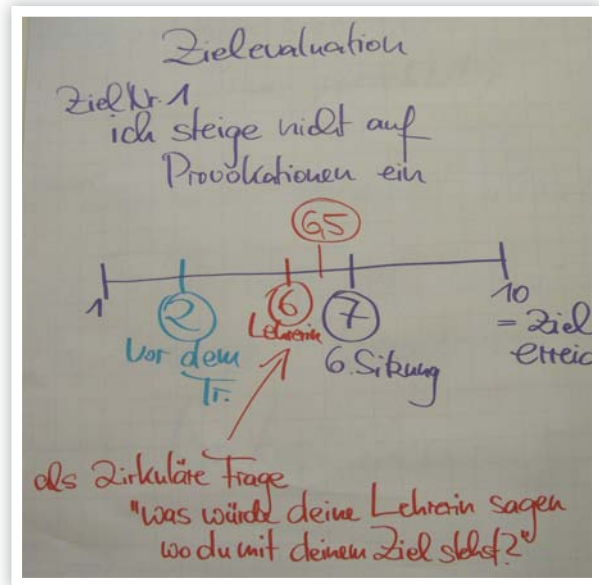 Zielevaluation
Ziel Nr. 1
ich steige nicht auf
Provokationen ein
6,5
1
2
6
7
10
Lehrerin
= Ziel
Vor dem
6. Sitzung
erreic
Tr.
als Zirkuläre Frage
"was würde deine Lehrerin sagen
wo du mit deinem Ziel stehst?"